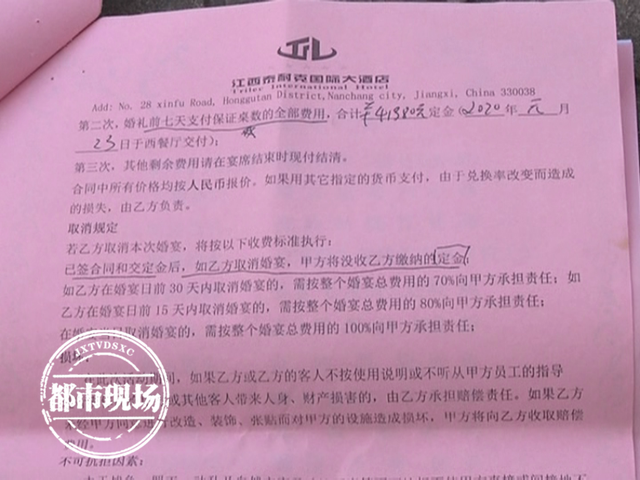 江西泰耐克国际大酒店
Triler International Hotel
Add: No. 28 xinfu Road, Honggutan District, Nanchang city, Jiangxi, China 330038
第二次，婚礼前七天支付保证桌数的全部费用，合计 ¥41380元定金（2020 年 元 月
23 日于西餐厅交付）；
第三次，其他剩余费用请在宴席结束时现付结清。
合同中所有价格均按人民币报价。如果用其它指定的货币支付，由于兑换率改变而造成
的损失，由乙方负责。
取消规定
若乙方取消本次婚宴，将按以下收费标准执行：
已签合同和交定金后，如乙方取消婚宴，甲方将没收乙方缴纳的定金；
如乙方在婚宴日前 30 天内取消婚宴的，需按整个婚宴总费用的 70%向甲方承担责任；如
乙方在婚宴日前 15 天内取消婚宴的，需按整个婚宴总费用的 80%向甲方承担责任；
在婚宴当日取消婚宴的，需按整个婚宴总费用的 100%向甲方承担责任；
损
期间，如果乙方或乙方的客人不按使用说明或不听从甲方员工的指导
或其他客人带来人身、财产损害的，由乙方承担赔偿责任。如果乙方
未经甲方同意进行改造、装饰、张贴而对甲方的设施造成损坏，甲方将向乙方收取赔偿
费用。
不可抗拒因素：
JXTVDSXC
都市现场